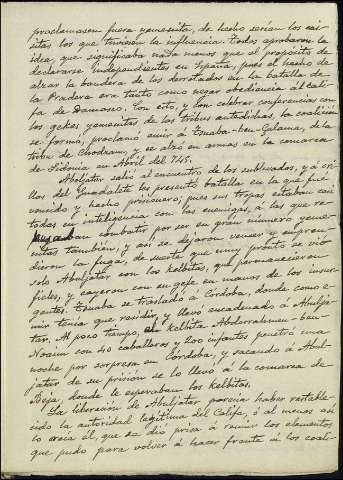 proclamasen fuera yemenita, de hecho serían los cai-
sitas los que tuviesen la influencia. Todos aprobaron la
idea, que significaba nada menos que el propósito de
declararse independientes en España, pues el hecho de
alzar la bandera de los derrotados en la batalla de
la Pradera era tanto como negar obediencia al cali-
fa de Damasco. Con esto, y con celebrar conferencias con
los gekes yemenitas de las tribus antedichas, la coalición
se formó, proclamó emir á Tsuaba-ben-Salama, de la
tribu de Chodzam, y se alzó en armas en la comarca
de Sidonia en Abril del 745.
Abuljatar salió al encuentro de los sublevados, y á ori-
llas del Guadalete les presentó batalla en la que fué
vencido y hecho prisionero; pues sus tropas estaban casi
todas en inteligencia con los enemigos, á las que re-
combatir por ser en gran número yeme-
nitas también, y así se dejaron vencer ó empren-
dieron la fuga, de suerte que muy pronto se vió
solo Abuljatar con los kelbitas, que permanecieron
fieles, y cayeron con su gefe en manos de los insur-
gentes. Tsuaba se trasladó á Córdoba, donde como e-
mir tenia que residir, y llevó encadenado á Abulja-
tar. Al poco tiempo, el kelbita Abderrahman-ben-
Noaim con 40 caballeros y 200 infantes penetró una
noche por sorpresa en Córdoba, y sacando á Abul-
jatar de su prisión se lo llevó á la comarca de
Beja, donde le esperaban los kelbitas.
La liberación de Abuljatar parecia haber restable-
cido la autoridad legítima del Califa, ó al menos así
lo creia él, que se dió prisa á reunir los elementos
que pudo para volver á hacer frente á los coali-